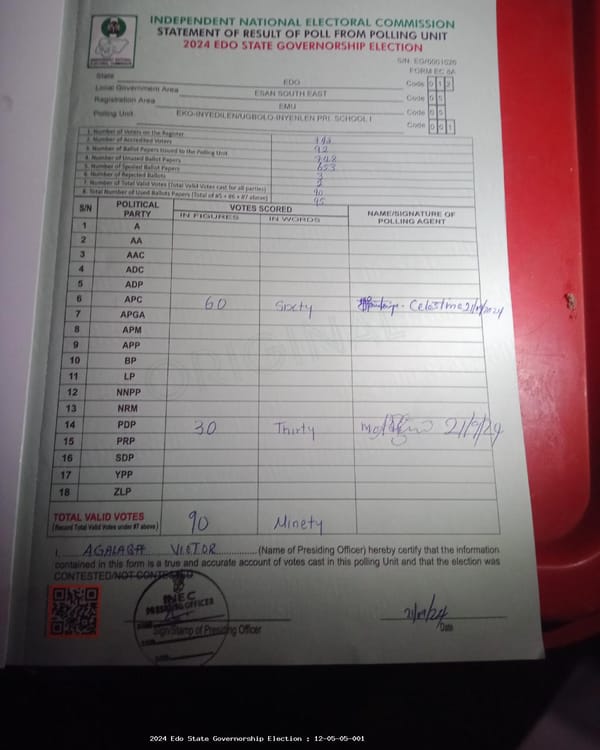 INDEPENDENT NATIONAL ELECTORAL COMMISSION
STATEMENT OF RESULT OF POLL FROM POLLING UNIT
2024 EDO STATE GOVERNORSHIP ELECTION
FORM EC 8A
State EDO Code 1 2
Local Government Area ESAN SOUTH EAST Code 0 5
Registration Area EMU Code 0 5
Polling Unit EKO-INYEDILEN/UGBOLO-INYENLEN PRI. SCHOOL I Code 0 0 1
1. Number of Voters on the Register
2. Number of Accredited Voters 92
3. Number of Ballot Papers Issued to the Polling Unit
4. Number of Unused Ballot Papers
5. Number of Spoiled Ballot Papers
6. Number of Rejected Ballots
7. Number of Total Valid Votes (Total Valid Votes cast for all parties) 90
8. Total Number of Used Ballots Papers (Total of #5 + #6 + #7 above)
S/N POLITICAL PARTY VOTES SCORED NAME/SIGNATURE OF POLLING AGENT
IN FIGURES IN WORDS
1 A
2 AA
3 AAC
4 ADC
5 ADP
6 APC 60 Sixty Celestina
7 APGA
8 APM
9 APP
10 BP
11 LP
12 NNPP
13 NRM
14 PDP 30 Thirty 21/9/24
15 PRP
16 SDP
17 YPP
18 ZLP
ORIGINAL
TOTAL VALID VOTES 90 Ninety
(Record Total Valid Votes under #7 above)
I, AGALABA VICTOR (Name of Presiding Officer) hereby certify that the information
contained in this form is a true and accurate account of votes cast in this polling Unit and that the election was
CONTESTED/NOT CONTESTED
INEC
PRESIDING OFFICER
Sign/Stamp of Presiding Officer
21/09/24
Date
2024 Edo State Governorship Election : 12-05-05-001